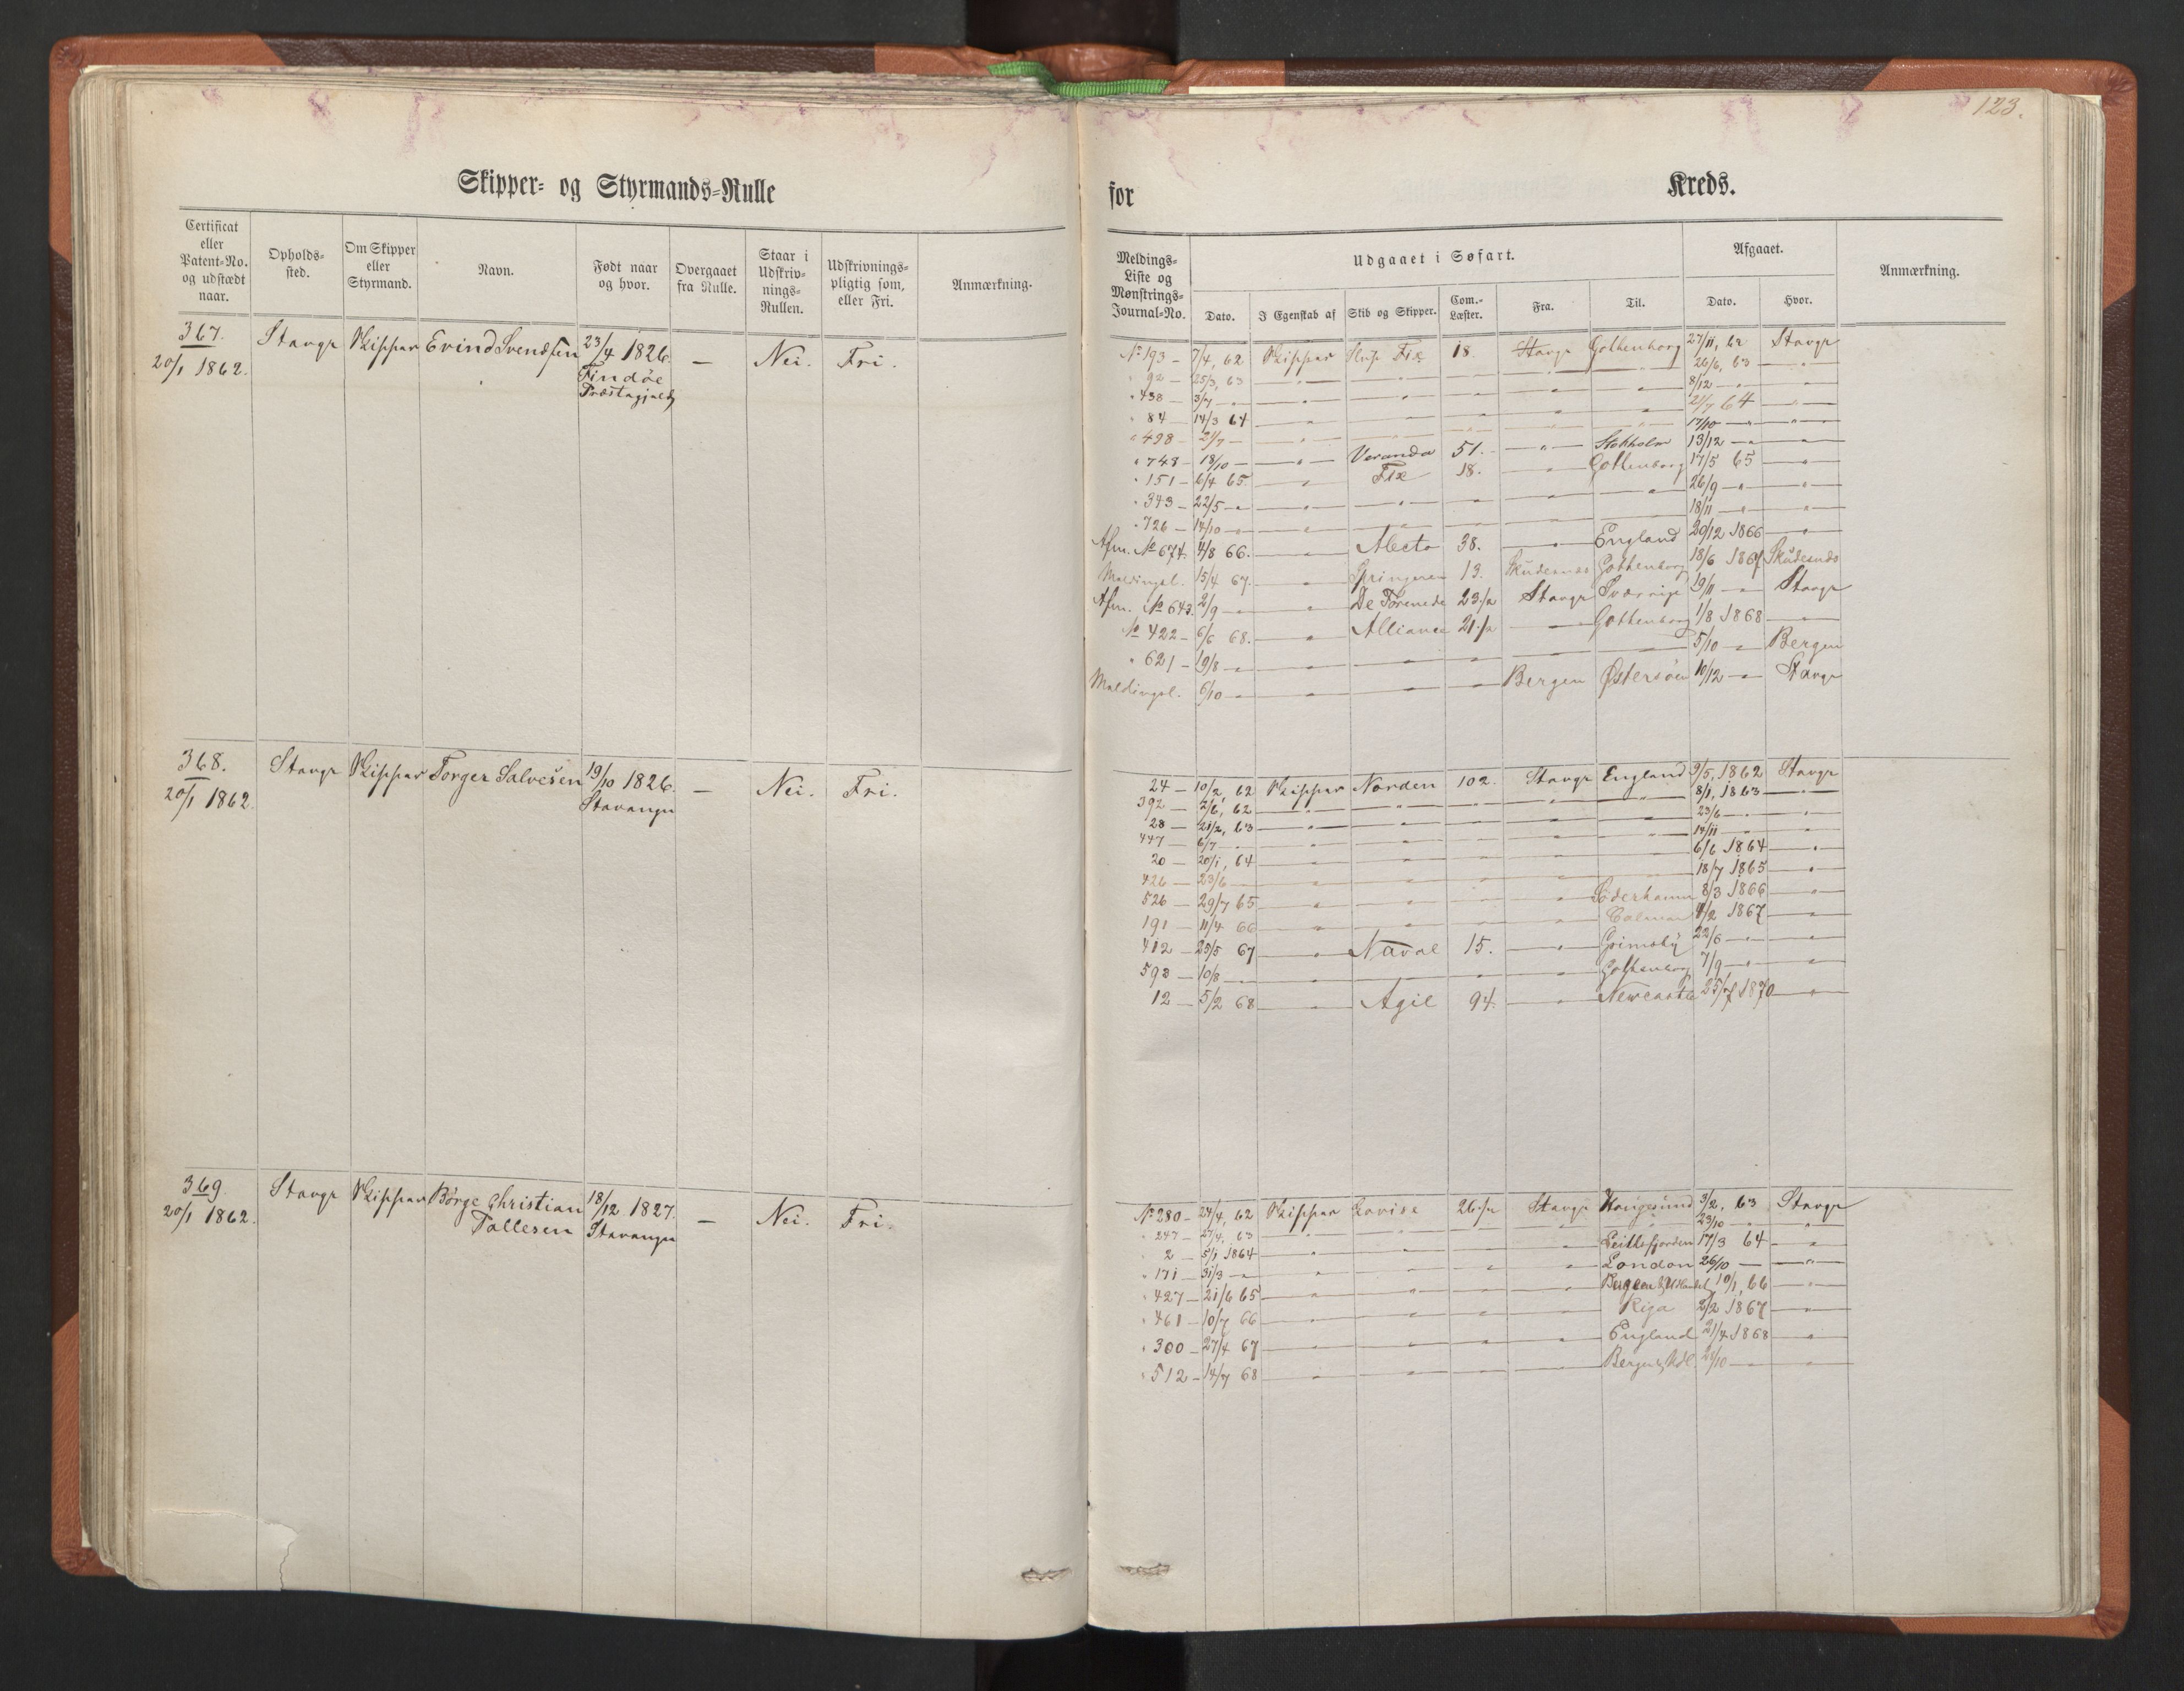 123.
Skipper- og Styrmands-Rulle
for Kreds.
Certificat eller Patent-No. og udstædt naar. Opholds-sted. Om Skipper eller Styrmand. Navn. Født naar og hvor. Overgaaet fra Rulle. Staar i Udskriv-nings-Rullen. Udskrivnings-pligtig som, eller Fri. Anmærkning.
Meldings-Liste og Mønstrings-Journal-No. Udgaaet i Søfart. Afgaaet. Anmærkning.
Dato. I Egenskab af Skib og Skipper. Com.-Læster. Fra. Til. Dato. Hvor.
367. Stavgr Skipper Evind Svendsen 23/4 1826. — Nei. Fri.
20/1 1862. Findöe
Præstegjeld
No 193 — 7/4, 62 Skipper Slup Fix 18. Stavgr Gothenborg 27/11, 62 Stavgr
" 92 — 25/3, 63 — " — " — " — " — " 26/6, 63 — " —
" 438 — 3/7 — " — " — " — " — " 8/12 — " — " —
" 84 — 14/3 64 — " — " — " — " — " 21/7 64 — " —
" 498 — 21/7 — — " — " — " — " — " 17/10 — " — " —
" 743 — 18/10 — — " — Veranda 51. — " — Stokholm 13/12 — " — " —
" 151 — 6/4 65. — " — Fix 18. — " — Gothenborg 17/5 65 — " —
" 343 — 22/5 — " — " — " — " — " — " 26/9 — " — " —
" 726 — 14/10 — " — " — " — " — " — " 18/11 — " — " —
Afm. No 674. 4/8 66. — " — Alecto 38. — " — England 20/12 1866 — " —
Meldingsl. 15/4 67. — " — Springeren 13. Skudesnes Gothenborg 18/6 1867 Skudesnds
Afm. No 643. 2/9 — " — " — De Forenede 23 1/2 Stavgr Sverrige 19/11 — " — Stavgr
No 422 — 6/6 68. — " — Alliance 21 1/2 — " — Gothenborg 1/8 1868 — " —
" 621 — 19/8 — " — " — " — " — " — " 5/10 — " — Bergen
Meldingsl. 6/10 — " — " — " — " — Bergen Østersöen 10/12 — " — Stavgr
368. Stavgr Skipper Torger Salvesen 19/10 1826. — Nei. Fri.
20/1 1862. Stavanger
24 — 10/2, 62 Skipper Norden 102. Stavgr England 9/5, 1862 Stavgr
392 — 2/6, 62 — " — " — " — " — " 8/1, 1863 — " —
28 — 21/2, 63 — " — " — " — " — " 23/6 — " — " —
447 — 6/7 — " — " — " — " — " — " 14/11 — " — " —
20 — 20/1, 64 — " — " — " — " — " 6/6 1864 — " —
426 — 23/6 — — " — " — " — " — " 18/7 1865 — " —
526 — 29/7 65 — " — " — " — " — Söderhamn 8/3 1866 — " —
191 — 11/4 66 — " — " — " — " — Calmar 4/2 1867 — " —
412 — 25/5 67 — " — Naval 15. — " — Grimsby 22/6 — " — " —
593 — 10/8 — " — " — " — " — " — Gothenborg 7/9 — " — " —
12 — 5/2 68 — " — Agil 94. — " — Newcastle 25/7 1870 — " —
369. Stavgr Skipper Börge Christian 18/12 1827. — Nei. Fri.
20/1 1862. Tallesen Stavanger
No 280 — 24/4, 62 Skipper Lovise 26 1/2 Stavgr Haugesund 3/2, 63 Stavgr
" 247 — 27/4, 63 — " — " — " — " — " 23/10 — " — " —
" 2 — 5/1 1864 — " — " — " — " — 17/3 64 — " —
" 171 — 31/3 — " — " — " — " — " — London 26/10 — — " —
" 427 — 21/6 65 — " — " — " — " — Bergen & 10/1, 66 — " —
" 461 — 10/7 66 — " — " — " — " — Riga 2/2 1867 — " —
" 300 — 27/4 67 — " — " — " — " — England 21/4 1868 — " —
" 512 — 14/7 68 — " — " — " — " — Bergen & Udl. 21/10 — " — " —